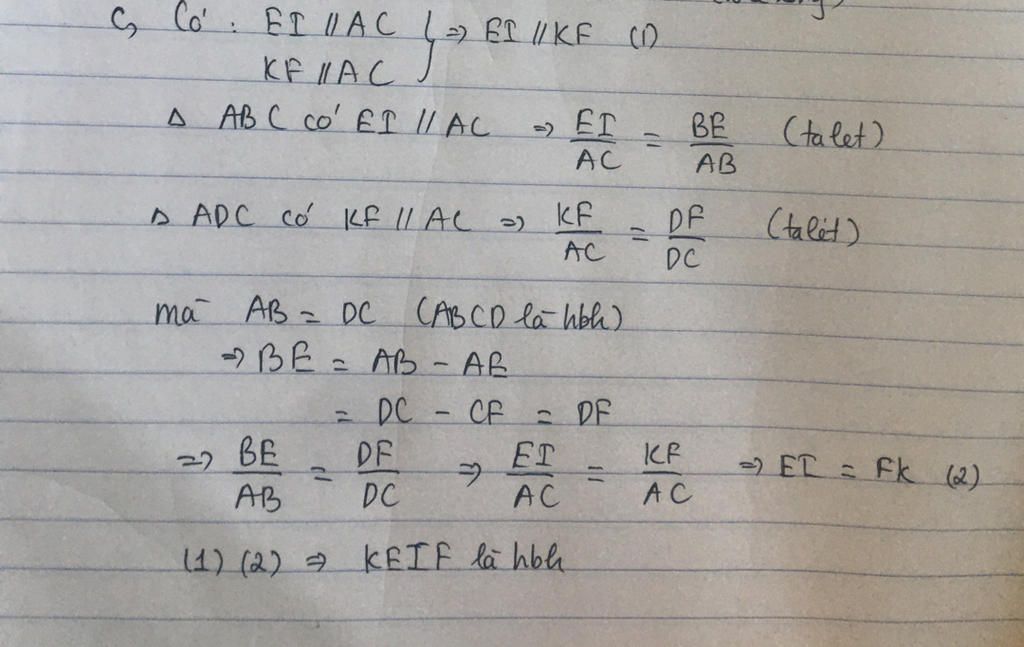 C, Có : EI // AC } => EI // KF (1)
KF // AC
Δ ABC có EI // AC => EI/AC = BE/AB (talet)
Δ ADC có KF // AC => KF/AC = DF/DC (talét)
mà AB = DC (ABCD là hbh)
=> BE = AB - AE
= DC - CF = DF
=> BE/AB = DF/DC => EI/AC = KF/AC => EI = FK (2)
(1) (2) => KEIF là hbh